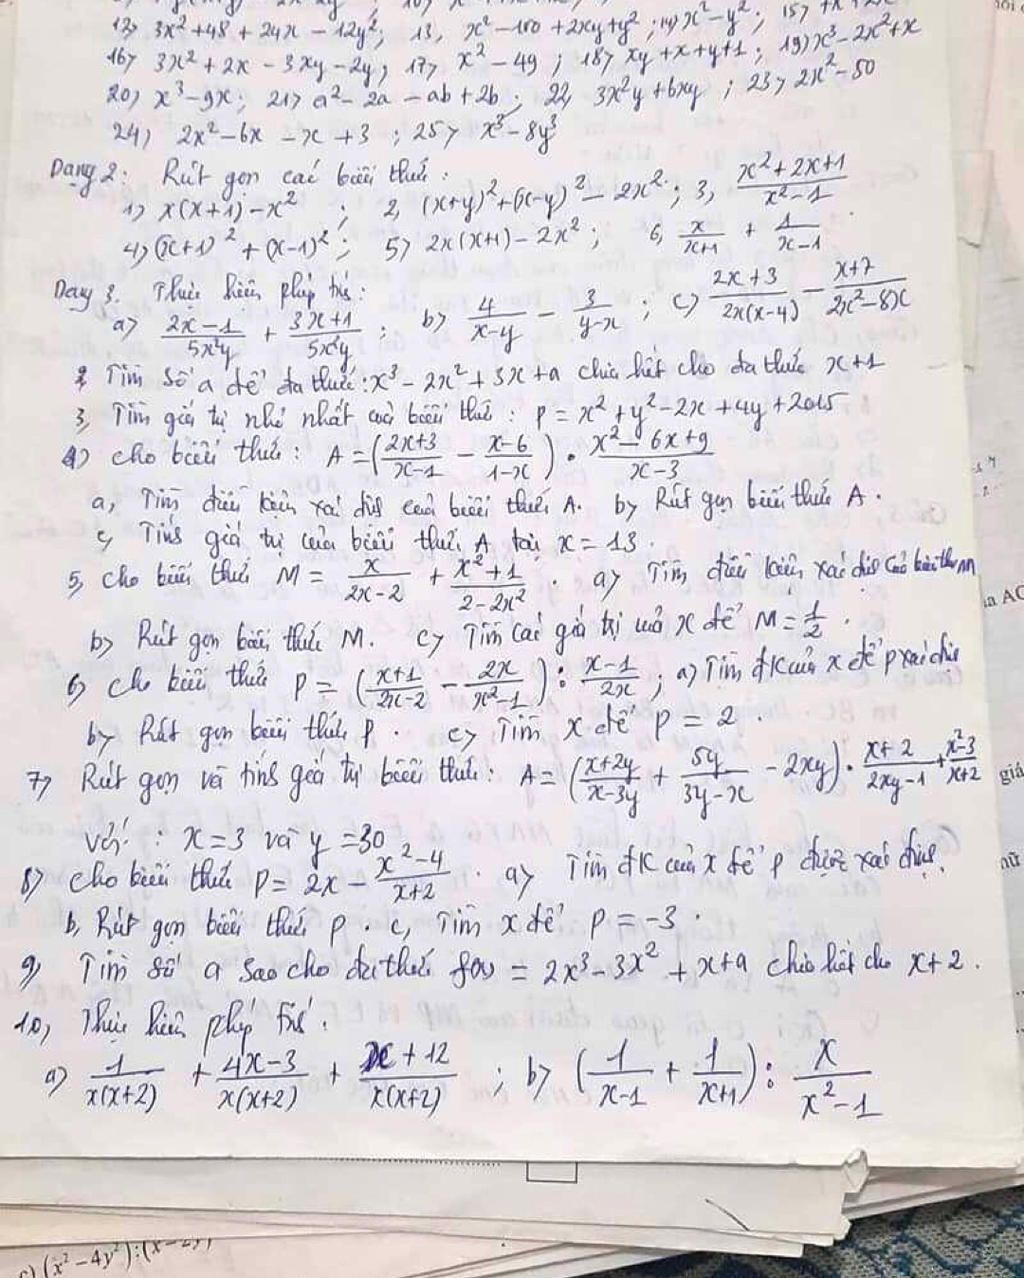 13) 3x² + 48 + 24x - 12y²; 13, x² - 100 + 2xy + y²; 14) x² - y²; 15)
16) 3x² + 2x - 3xy - 2y; 17) x² - 49; 18) xy + x + y + 1; 19) x³ - 2x² + x
20) x³ - 9x; 21) a² - 2a - ab + 2b; 22, 3x²y + 6xy; 23) 2x² - 50
24) 2x² - 6x - x + 3; 25) x³ - 8y³
Dạng 2: Rút gọn các biểu thức:
1) x(x+1) - x²; 2, (x+y)² + (x-y)² - 2x²; 3, (x² + 2x + 1)/(x² - 1)
4) (x+1)² + (x-1)²; 5) 2x(x+1) - 2x²; 6, x/(x+1) + 1/(x-1)
Dạng 3. Thực hiện phép tính:
a) (2x-1)/(5x²y) + (3x+1)/(5x²y); b) 4/(x-y) - 3/(y-x); c) (2x+3)/(2x(x-4)) - (x+7)/(2x²-8x)
2, Tìm số a để đa thức: x³ - 2x² + 3x + a chia hết cho đa thức x+1
3, Tìm giá trị nhỏ nhất của biểu thức. P = x² + y² - 2x + 4y + 2015
4) cho biểu thức: A = ((2x+3)/(x-1) - (x-6)/(1-x)) · (x² - 6x + 9)/(x-3)
a, Tìm điều kiện xác định của biểu thức A. b) Rút gọn biểu thức A.
c) Tính giá trị của biểu thức A tại x = 13.
5, cho biểu thức M = x/(2x-2) + (x²+1)/(2-2x²). a) Tìm điều kiện xác định của biểu thức M
b) Rút gọn biểu thức M. c) Tìm các giá trị của x để M = 1/2.
6) cho biểu thức P = ((x+1)/(2x-2) - 2x/(x²-1)) : (x-1)/(2x); a) Tìm đk của x để P xác định
b) Rút gọn biểu thức P. c) Tìm x để P = 2.
7) Rút gọn và tính giá trị biểu thức: A = ((x+2y)/(x-3y) + 5y/(3y-x) - 2xy) · (x+2)/(2xy-1) + (x²-3)/(x+2)
Với: x = 3 và y = 30
8) cho biểu thức P = 2x - (x²-4)/(x+2). a) Tìm đk của x để P được xác định.
b, Rút gọn biểu thức P. c, Tìm x để P = -3.
9, Tìm số a sao cho đa thức f(x) = 2x³ - 3x² + x + a chia hết cho x + 2.
10, Thực hiện phép tính:
a) 1/(x(x+2)) + (4x-3)/(x(x+2)) + (x+12)/(x(x+2)); b) (1/(x-1) + 1/(x+1)) : x/(x²-1)
c) (x² - 4y²) : (x - 2y)